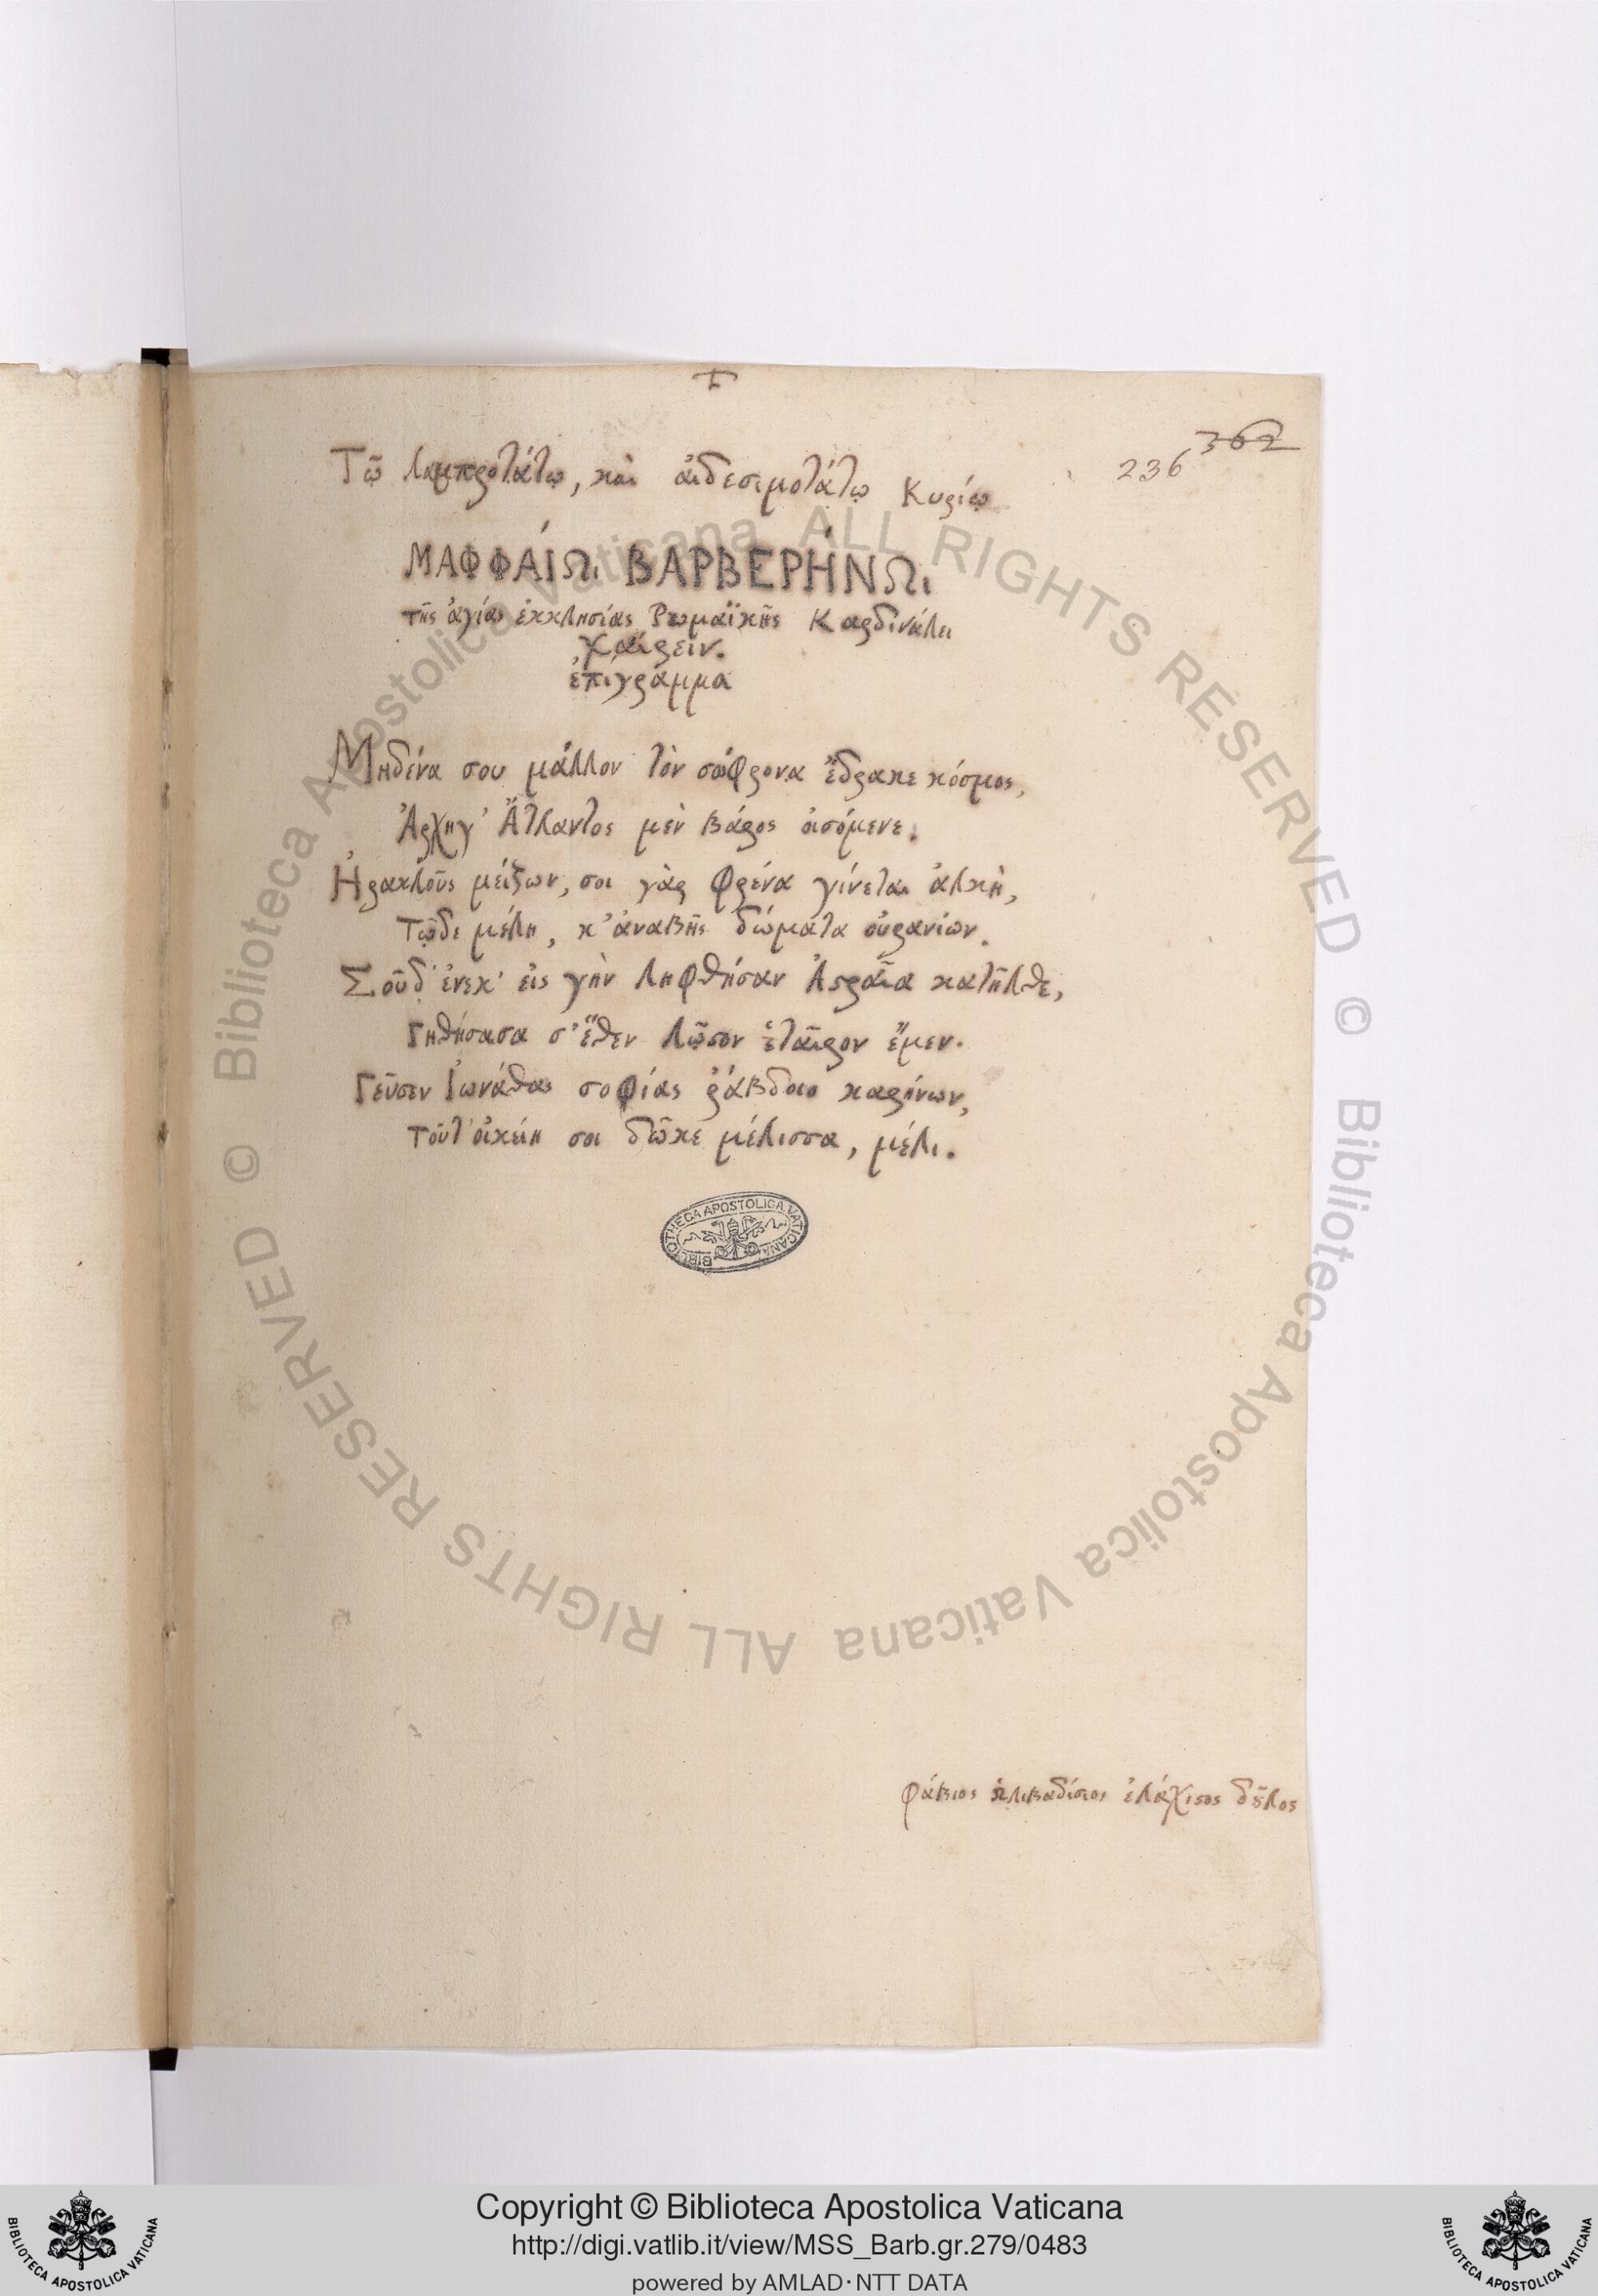 362
236
Τῷ λαμπροτάτῳ, καὶ ἀιδεσιμοτάτῳ Κυρίῳ
ΜΑΦΦΑΊΩι ΒΑΡΒΕΡΉΝΩι
τῆς ἁγίας ἐκκλησίας Ρωμαϊκῆς Καρδινάλει
χαίρειν.
ἐπιγράμμα
Μηδένα σου μάλλον τὸν σώφρονα ἔδρακε κόσμος,
Ἀρχηγ' Ἄτλαντος μὲν βάρος οἰσόμενε.
Ἡρακλοῦς μείζων, σοι γὰρ φρένα γίνεται ἀλκὴ,
Τῷδε μέλη, κ' ἀναβῆς δώματα οὐρανίων.
Σοῦδ' ἑνεκ' εἰς γὴν ληφθήσαν Ἀστραῖα κατῆλθε,
Γηθήσασα σ' ἕθεν λῷσον ἑταῖρον ἔμεν.
Γεῦσεν Ἰωνάθας σοφίας ῥάβδοιο καρήνων,
Τοῦτ' οἰκείη σοι δῶκε μέλισσα, μέλι.
BIBLIOTHECA APOSTOLICA VATICANA
φάβιος ὠλιβαδίσιος ἐλάχιστος δοῦλος
© Biblioteca Apostolica Vaticana ALL RIGHTS RESERVED
© Biblioteca Apostolica Vaticana ALL RIGHTS RESERVED
Copyright © Biblioteca Apostolica Vaticana
http://digi.vatlib.it/view/MSS_Barb.gr.279/0483
powered by AMLAD·NTT DATA
BIBLIOTECA APOSTOLICA VATICANA
BIBLIOTECA APOSTOLICA VATICANA